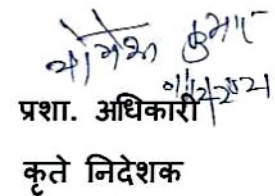 योगेश कुमार
01/12/2021
प्रशा. अधिकारी
कृते निदेशक